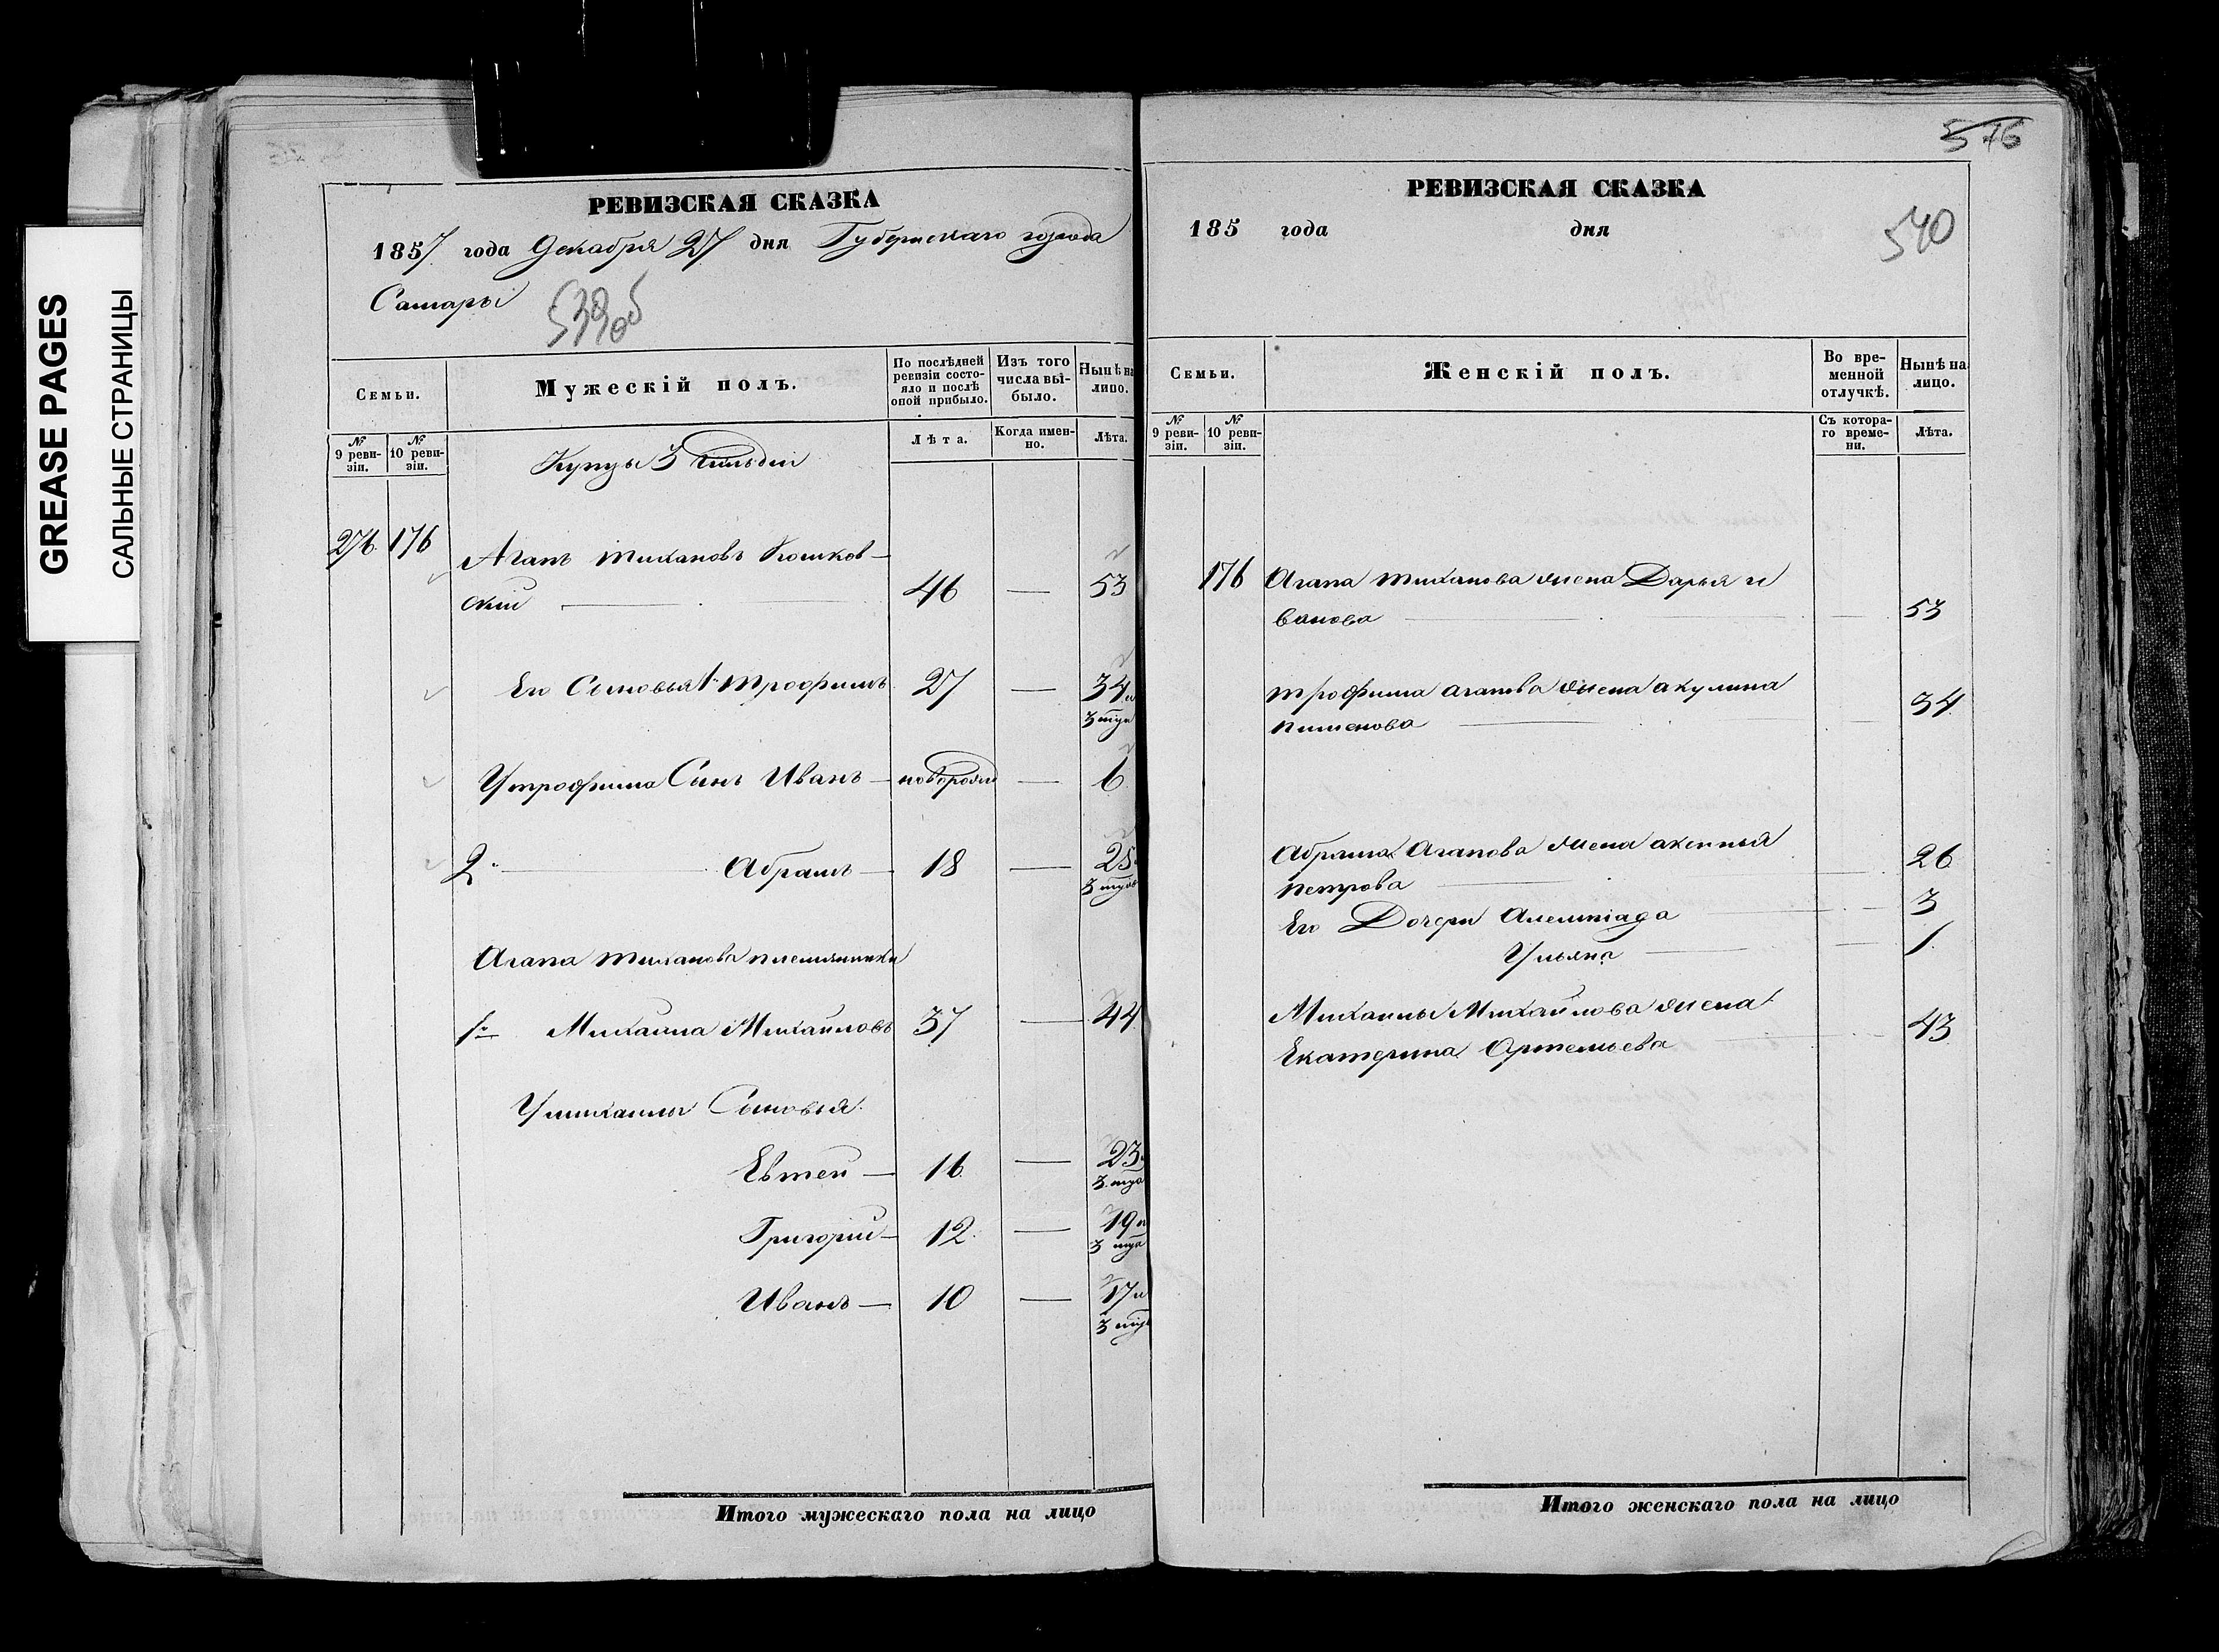 GREASE PAGES
САЛЬНЫЕ СТРАНИЦЫ
РЕВИЗСКАЯ СКАЗКА
1857 года Декабря 27 дня Губернскаго города
Самары
539об
Семьи.
Мужескій полъ.
По послѣдней ревизіи состояло и послѣ оной прибыло.
Изъ того числа выбыло.
Нынѣ на лицо.
№ 9 ревизіи.
№ 10 ревизіи.
Лѣта.
Когда именно.
Лѣта.
Купцы 3 гильдіи
276 176 Агапъ тихановъ Кошков-
скій 46 — 53
Его Сыновья 1й трофимъ 27 — 34 и
3 тре
У трофима Сынъ Иванъ — новорожд — 6
2й Абрамъ — 18 — 25
3 трет
Агапа тиханова племянники
1й Михаила Михайловъ 37 — 44
У михаилы Сыновья
Евтей — 16 — 23
3 тре
Григорій — 12 — 19 и
3 тре
Иванъ — 10 — 17 и
3 тре
Итого мужескаго пола на лицо
576
РЕВИЗСКАЯ СКАЗКА
185 года дня
540
Семьи.
Женскій полъ.
Во временной отлучкѣ.
Нынѣ на лицо.
№ 9 ревизіи.
№ 10 ревизіи.
Съ котораго времени.
Лѣта.
176 Агапа тиханова жена Дарья и
ванова — 53
трофима агапова жена акулина
пименова — 34
Абрама Агапова жена аксинья
петрова — 26
Его Дочери Алемпіада — 3
Ульяна — 1
Михаилы Михайлова жена
Екатерина Артемьева — 43
Итого женскаго пола на лицо